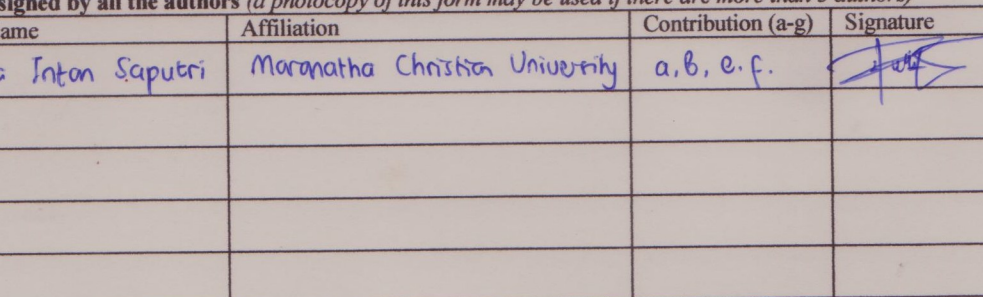 signed by all the authors (a photocopy of this form may be used if there are more than 5 authors)
ame Affiliation Contribution (a-g) Signature
Intan Saputri Maranatha Christian University a, b, e. f.